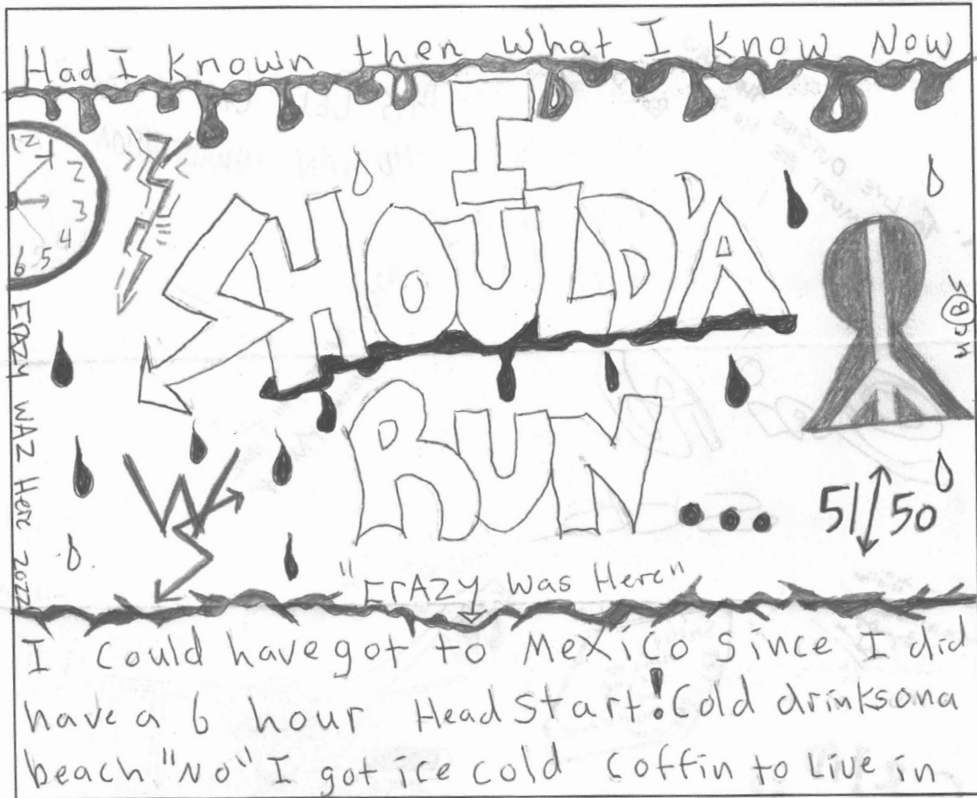 Had I known then what I know Now
I
SHOULD'A
RUN...
12
1
2
3
4
5
6
ErAzy WAZ Here 2022
51/50
"ErAZY was Here"
I Could have got to Mexico since I did
have a 6 hour Head Start! Cold drinks on a
beach "No" I got ice cold coffin to Live in